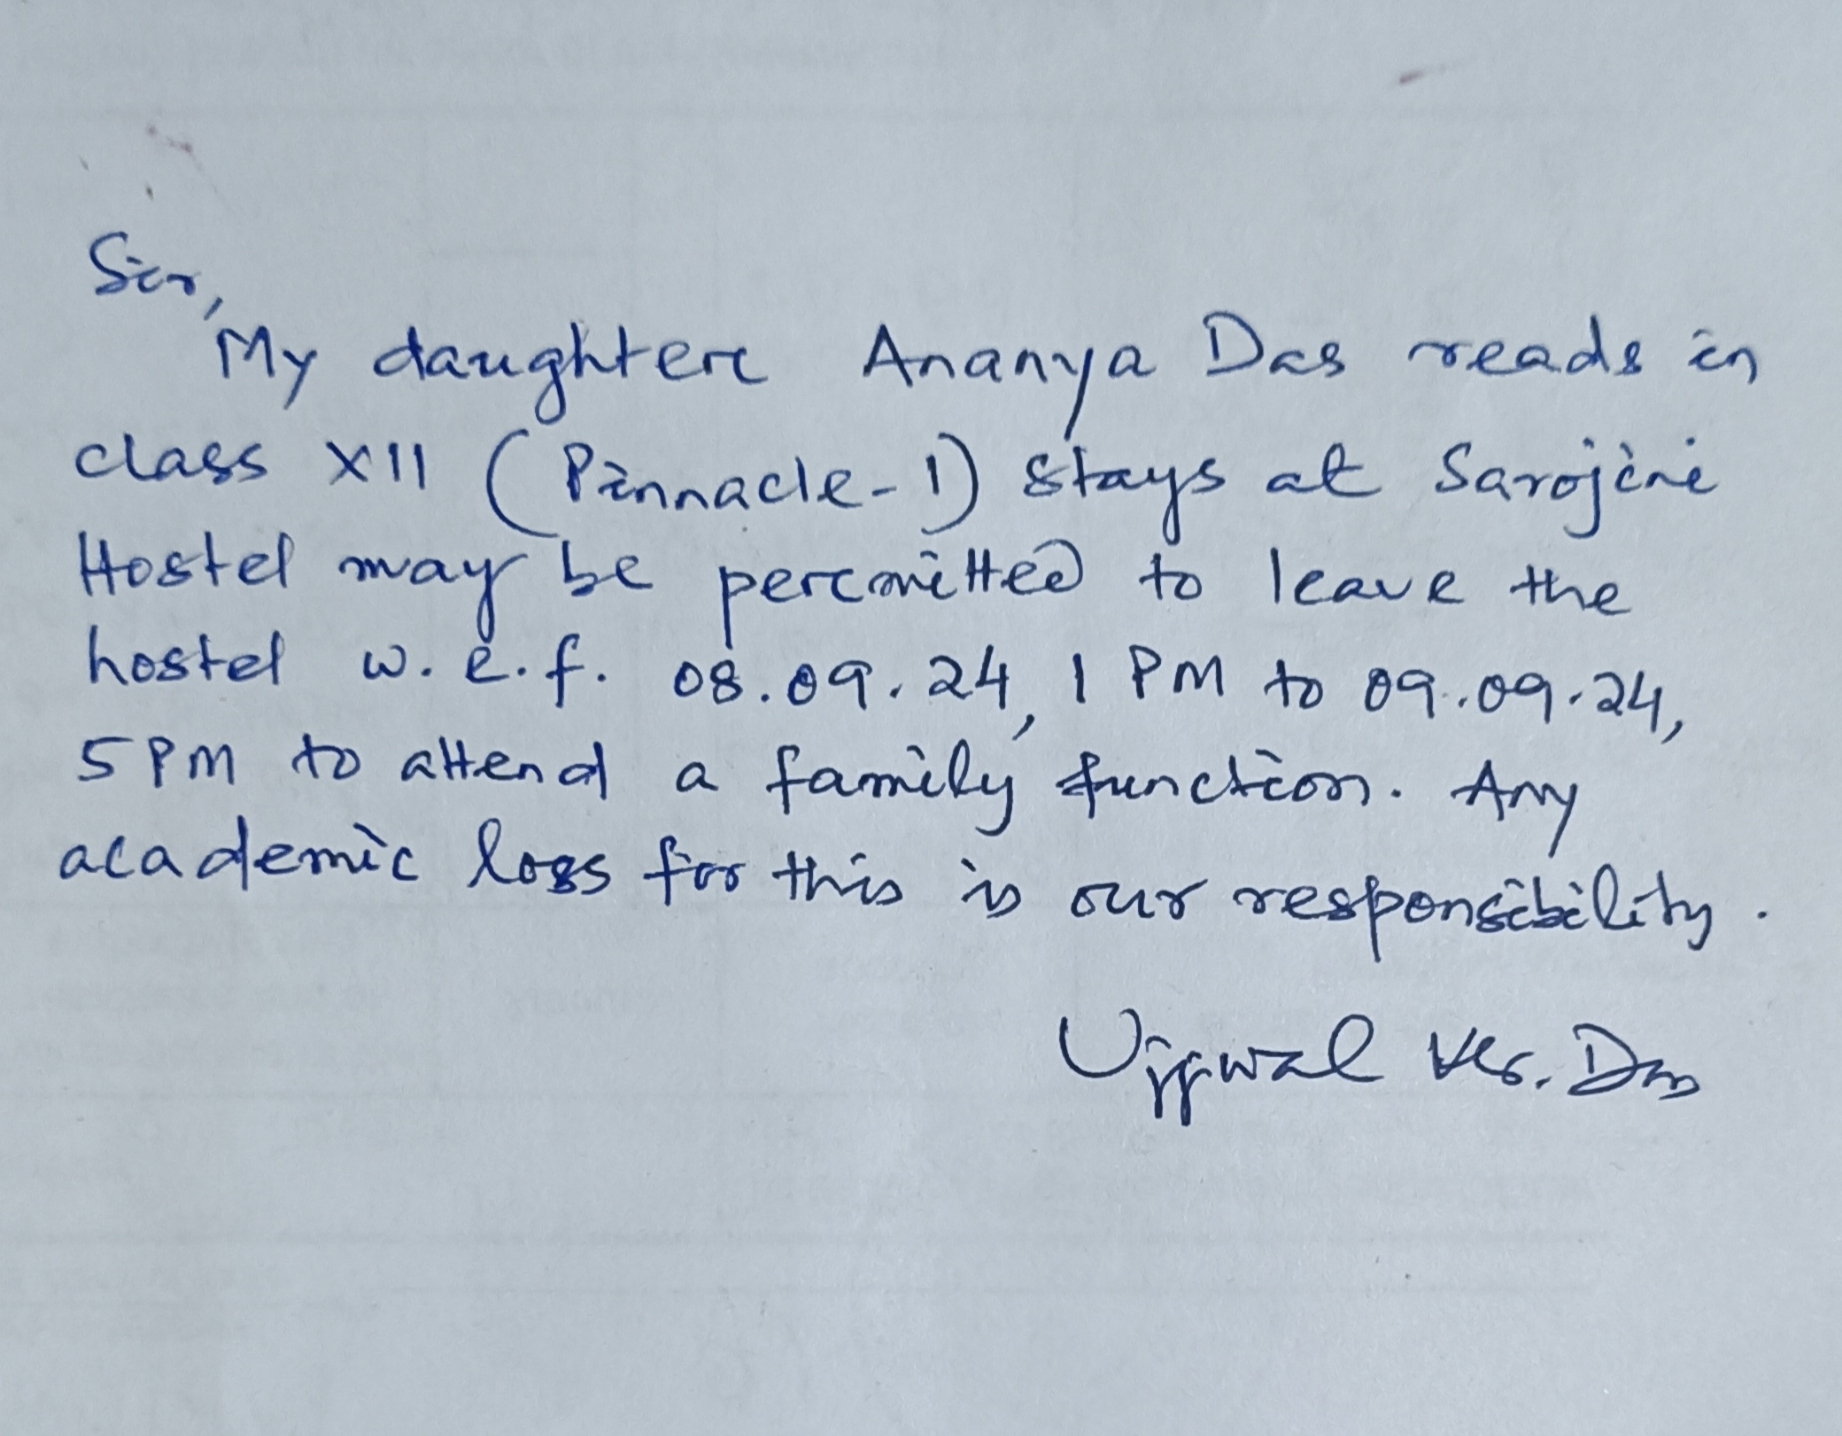 Sir,
My daughter Ananya Das reads in
class XII (Pinnacle-1) stays at Sarojini
Hostel may be permitted to leave the
hostel w.e.f. 08.09.24, 1 PM to 09.09.24,
5 PM to attend a family function. Any
academic loss for this is our responsibility.
Ujjwal Kr. Das